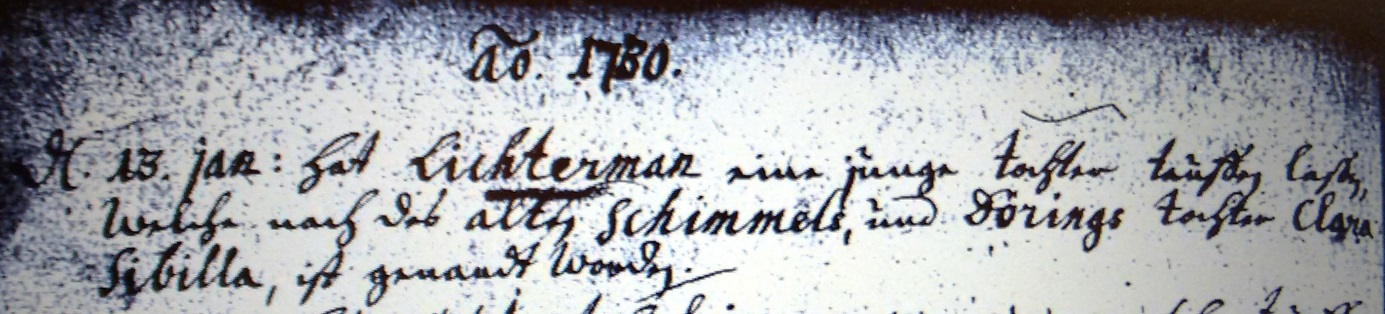 Ao. 1730.
d. 13. jan: hat Lichterman eine junge tochter tauffen lassen,
Welche nach des alten Schimmels, und Dörings tochter Clara
Sibilla, ist genandt worden.